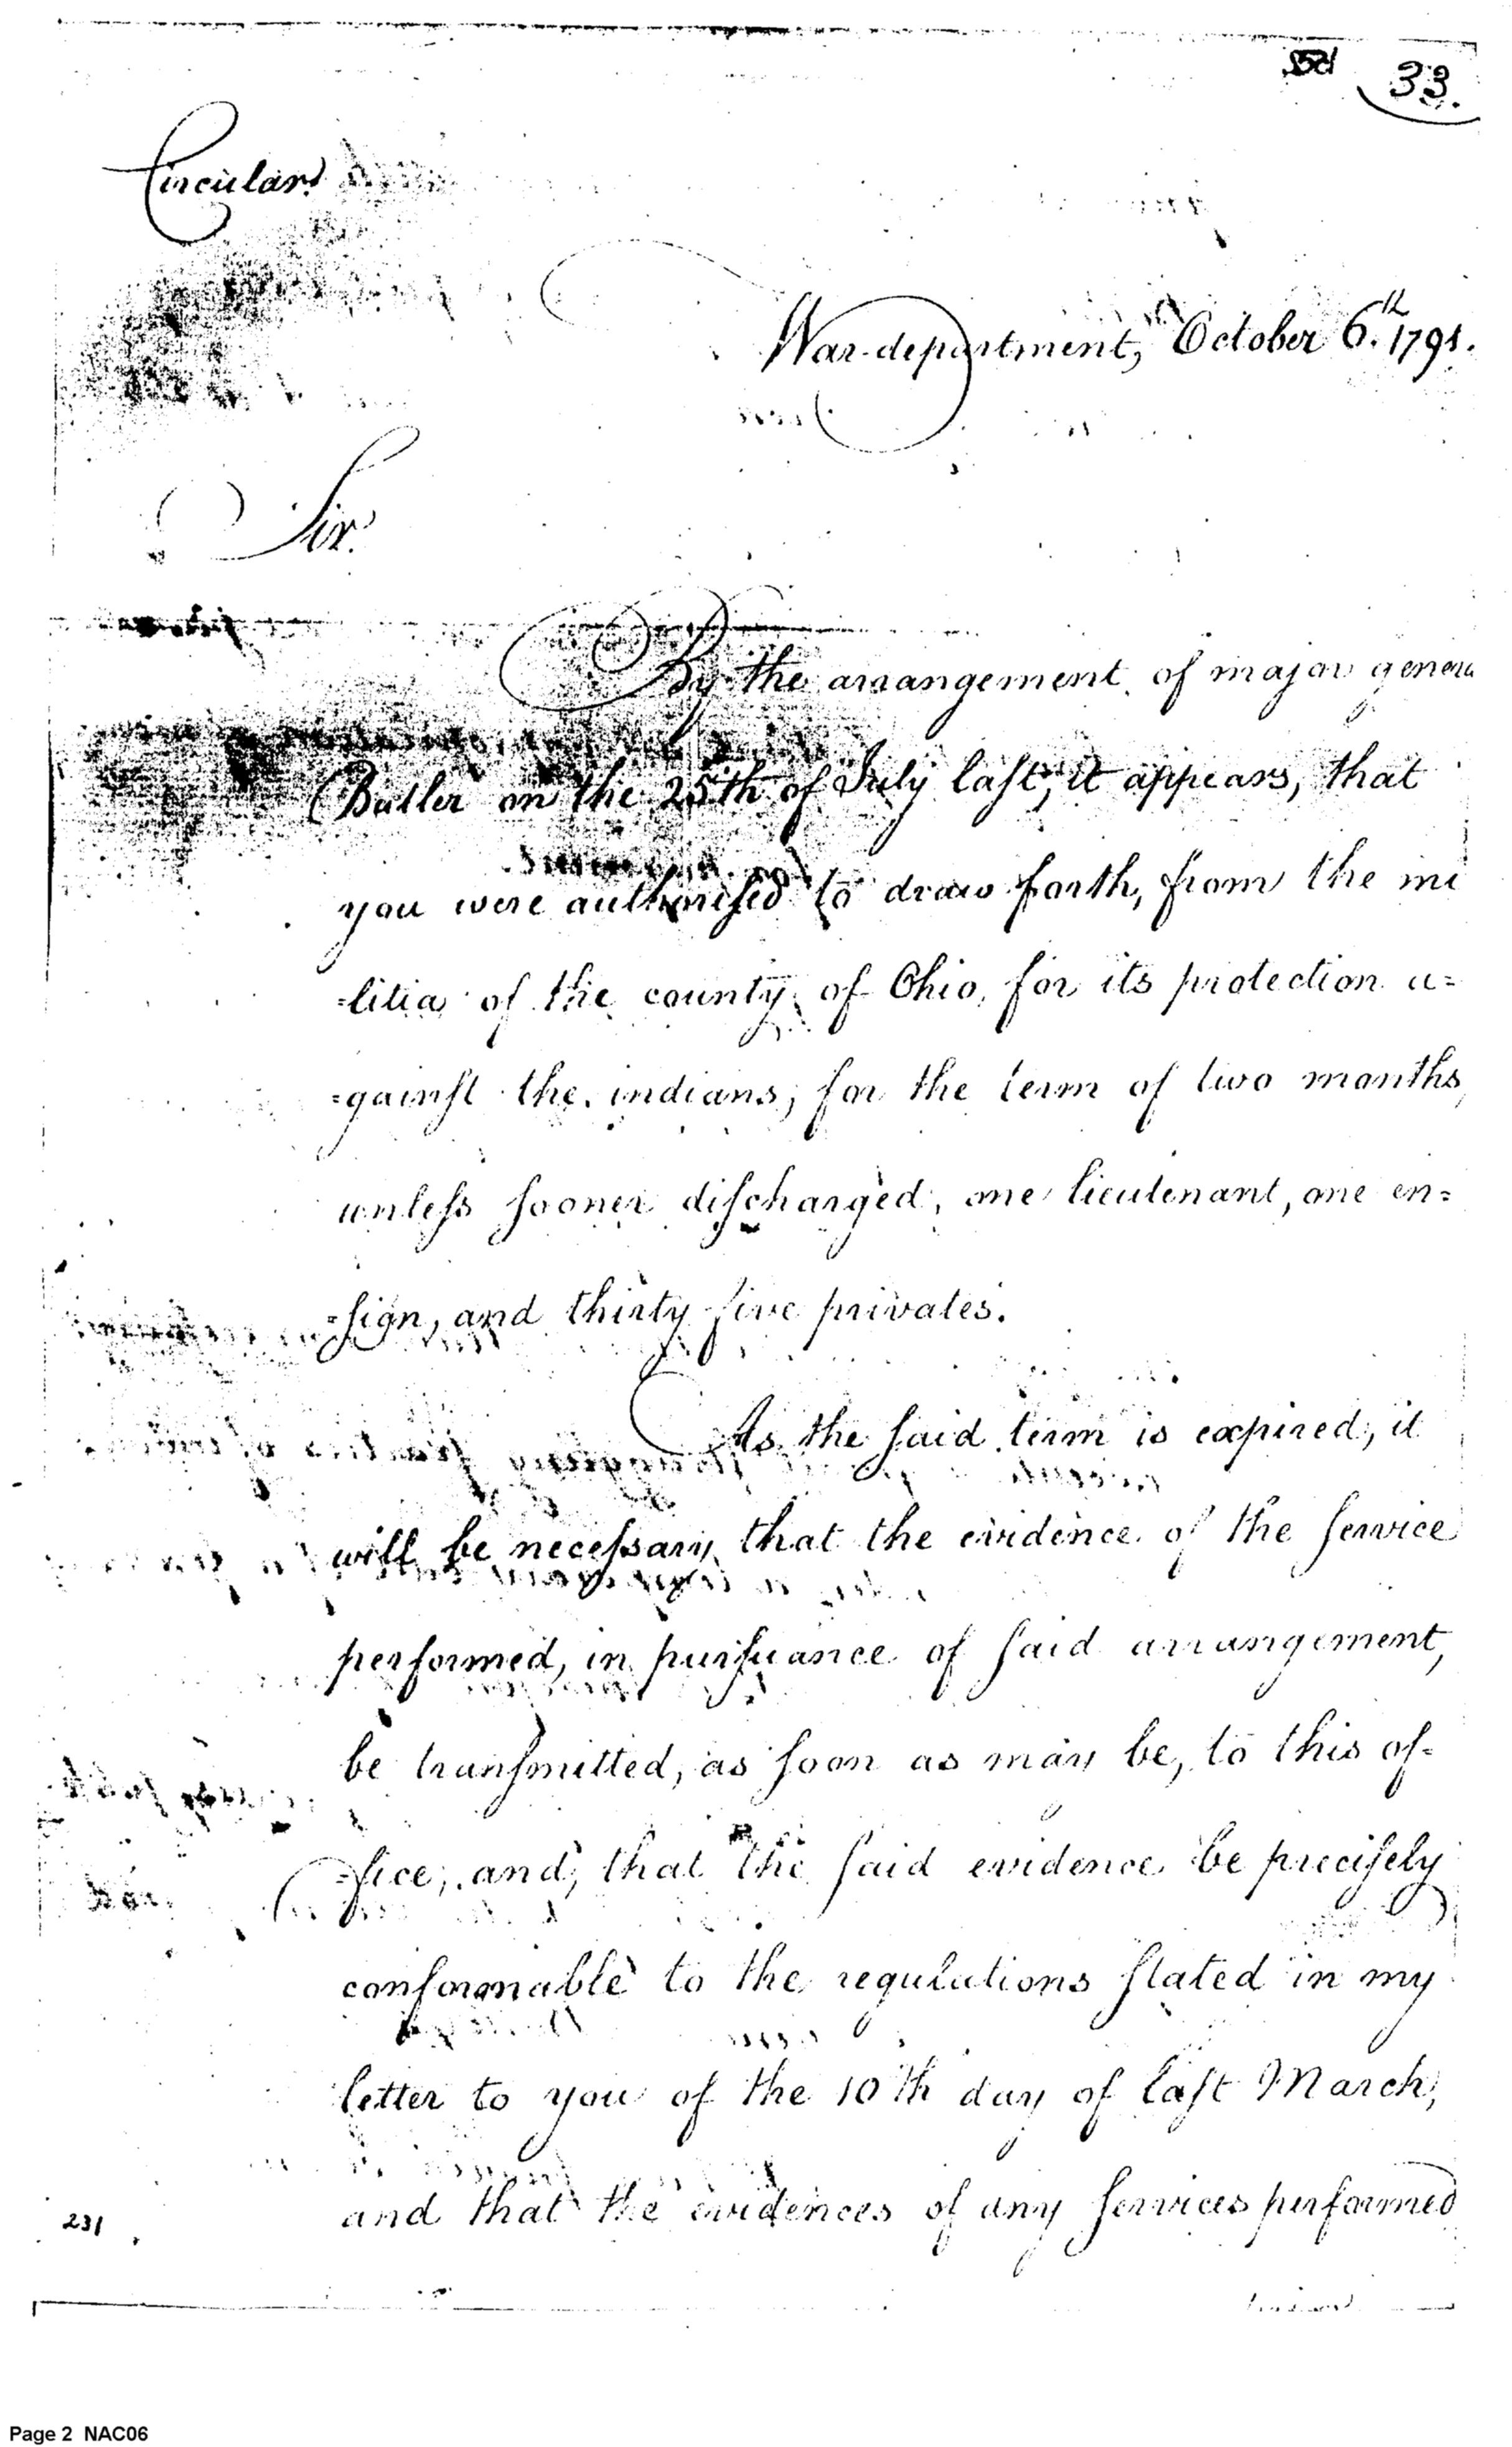 33.
Circular
War-department, October 6.th 1791.
Sir.
By the arrangement of major genera
Butler on the 25th of July laſt, it appears, that
you were authoriſed to draw forth, from the mi
=litia of the county of Ohio, for its protection a=
=gainſt the indians, for the term of two months,
unleſs ſooner diſcharged, one lieutenant, one en=
=ſign, and thirty five privates.
As the ſaid term is expired, it
will be neceſsary that the evidence of the ſervice
performed, in purſuance of ſaid arrangement,
be tranſmitted, as ſoon as may be, to this of=
=fice; and, that the ſaid evidence be preciſely
conformable to the regulations ſtated in my
letter to you of the 10th day of laſt March,
and that the evidences of any ſervices performed
231
Page 2 NAC06